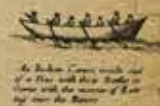 An Indian Canoe made out
of a Tree with their Paddles in
with the manner of Row
ing over the Rivers